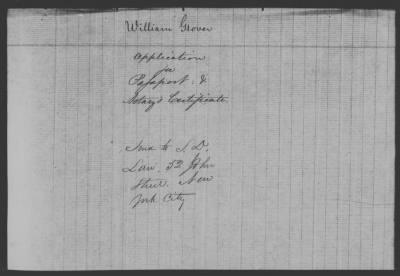 William Glover
Application
for
Passport &
Notary's Certificate
Send to S. D.
Law, 52 John
Street New
York City